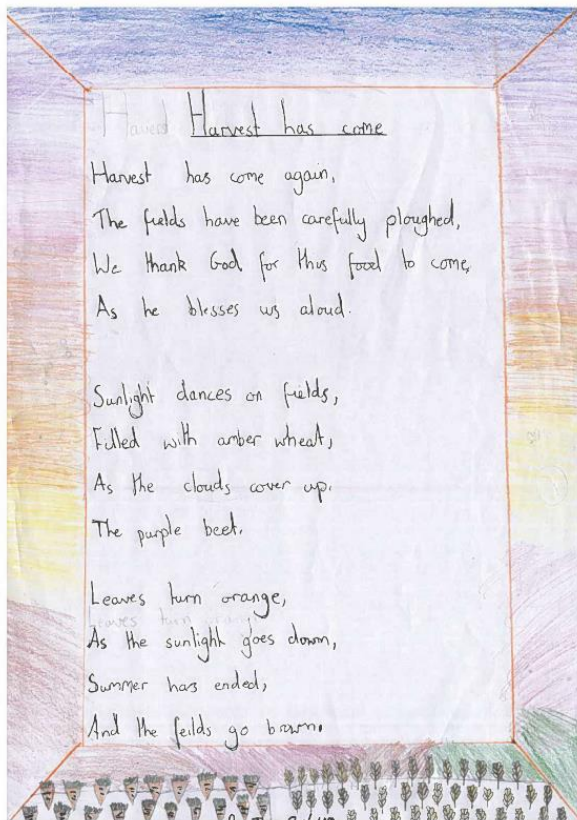 Harvest has come
Harvest has come again,
The fields have been carefully ploughed,
We thank God for this food to come,
As he blesses us aloud.
Sunlight dances on fields,
Filled with amber wheat,
As the clouds cover up.
The purple beet.
Leaves turn orange,
Leaves turn orange
As the sunlight goes down,
Summer has ended,
And the feilds go brown.